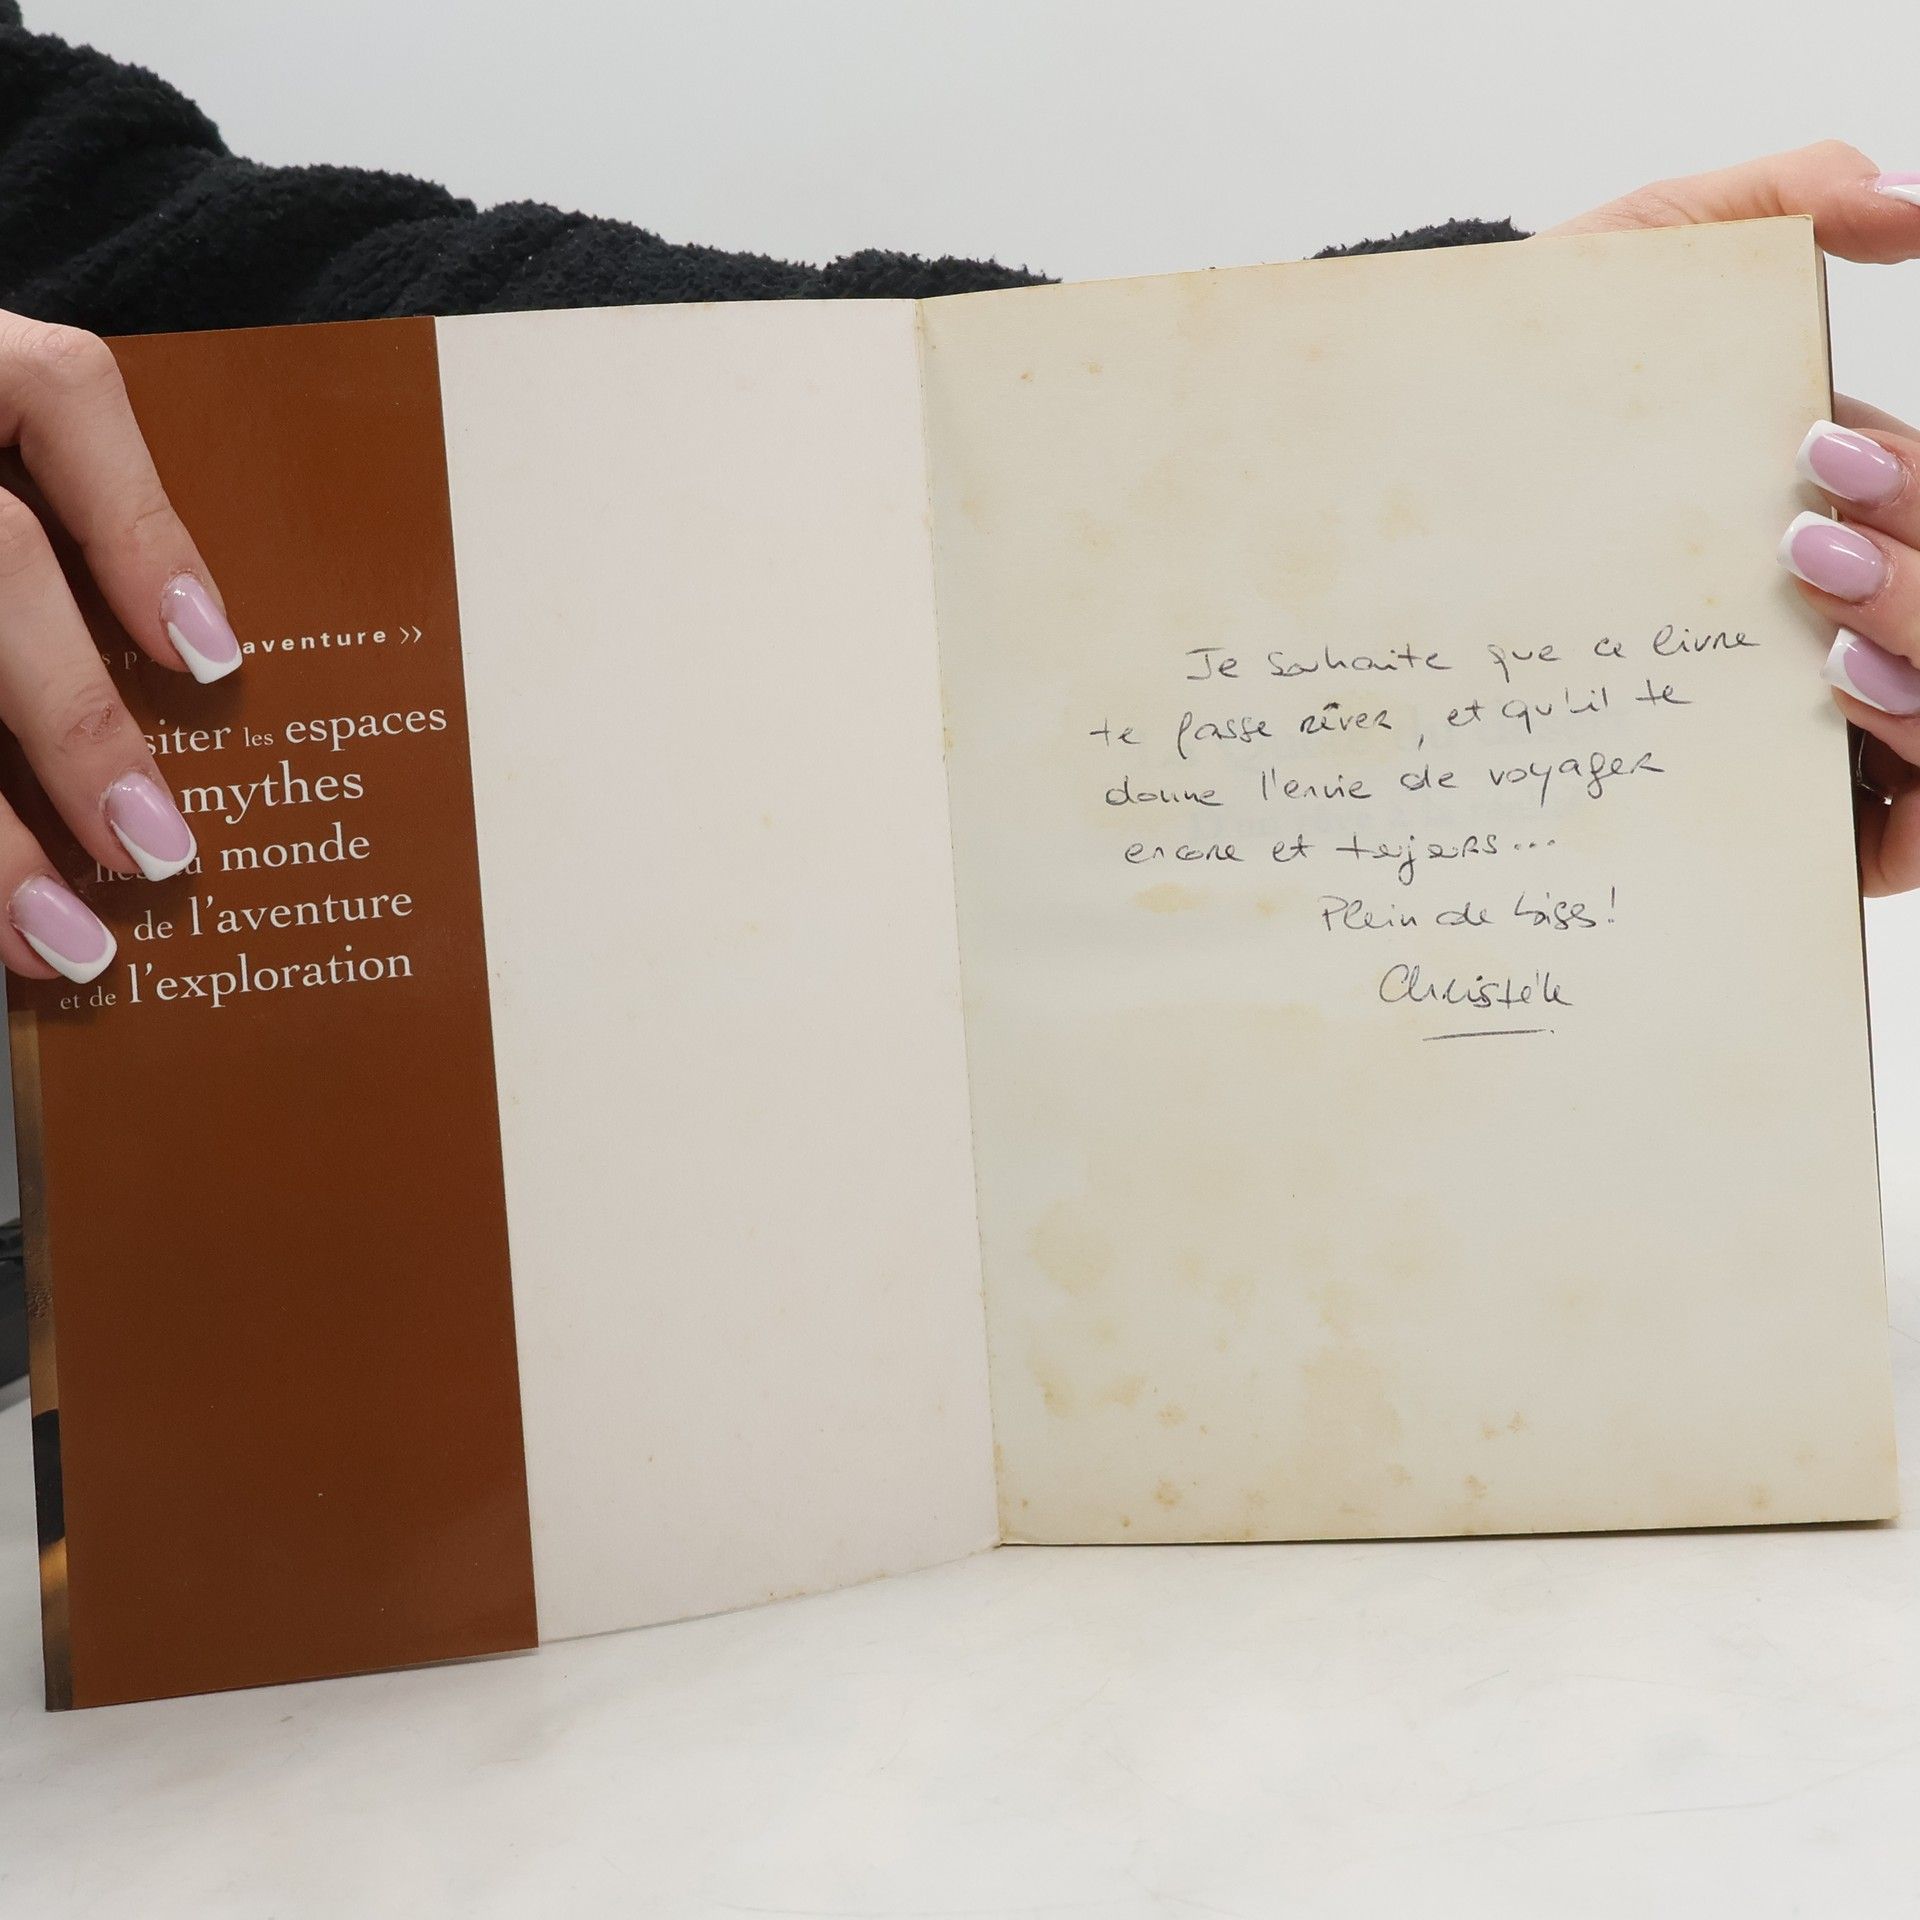 aventure »
siter les espaces
mythes
monde
de l'aventure
et de l'exploration
Je souhaite que ce livre
te fasse rêver, et qu'il te
donne l'envie de voyager
encore et toujours...
Plein de biss!
Christèle